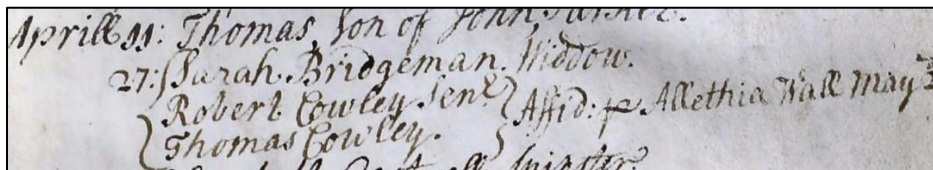 Aprill 11: Thomas, Son of John Turner.
27: Sarah Bridgeman. Widdow.
Robert Cowley Senr.
Thomas Cowley. Affid: p Allethia Wall May
Spinster.